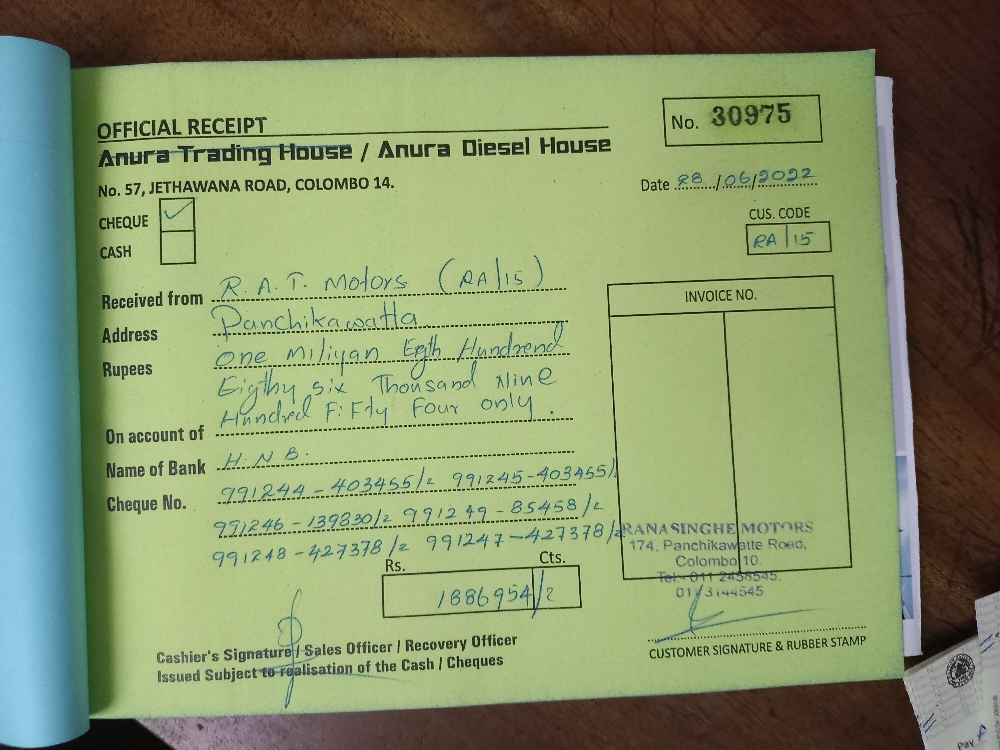 OFFICIAL RECEIPT
No. 30975
Anura Trading House / Anura Diesel House
No. 57, JETHAWANA ROAD, COLOMBO 14.
Date 28/06/2022
CHEQUE ✓
CASH
CUS. CODE
RA/15
Received from R.A.T. Motors (RA/15)
Address Panchikawatta
Rupees one Miliyan Egth Hundrend
Eigthy six Thousand Nine
Hundred Fifty Four only.
On account of
Name of Bank H.N.B.
Cheque No. 991244-403455/= 991245-403455/=
991246-139830/= 991249-85458/=
991248-427378/= 991247-427378/=
INVOICE NO.
Rs. Cts.
1886954/=
RANASINGHE MOTORS
174, Panchikawatte Road,
Colombo 10.
Tel:- 011 2458545,
011 3144545
Cashier's Signature / Sales Officer / Recovery Officer
Issued Subject to realisation of the Cash / Cheques
CUSTOMER SIGNATURE & RUBBER STAMP
Pay